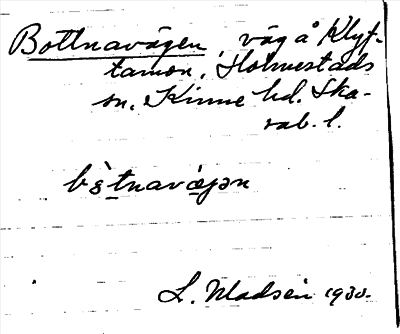 Bottnavägen, väg å Klyf-
tamon, Holmestads
sn. Kinne hd. Ska-
rab. l.
bètnavæ̀jən
L. Madsén 1930.